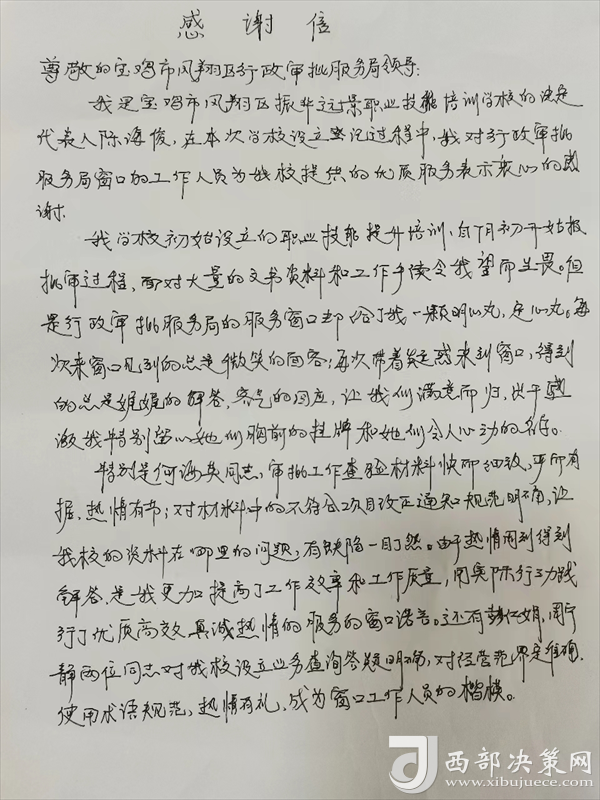 感谢信
尊敬的宝鸡市凤翔区行政审批服务局领导:
我是宝鸡市凤翔区振华远景职业技能培训学校的法定
代表人陈海俊,在本次学校设立登记过程中,我对行政审批
服务局窗口的工作人员为我校提供的优质服务表示衷心的感
谢.
我学校初始设立的职业技能提升培训,自7月初开始报
批审过程,面对大量的文书资料和工作手续令我望而生畏。但
是行政审批服务局的服务窗口却给了我一颗明心丸,定心丸。每
次来窗口见到的总是微笑的面容;每次带着疑惑来到窗口,得到
的总是娓娓的解答,客气的回应,让我们满意而归,出于感
激我特别留心她们胸前的挂牌和她们令人心动的名字。
特别是何海英同志,审批工作查验材料快而细致,严而有
据,热情有节;对材料中的不符合项目改正通知规范明确,让
我校的资料在哪里的问题,有缺陷一目了然。由于热情周到得到
解答,是我更加提高了工作效率和工作质量,用实际行动践
行了优质高效真诚热情的服务的窗口诺言。还有 娟,周宁
静两位同志对我校设立业务查询答疑明确,对经营范界定准确,
使用术语规范,热情有礼,成为窗口工作人员的楷模。
西部决策网
www.xibujuece.com